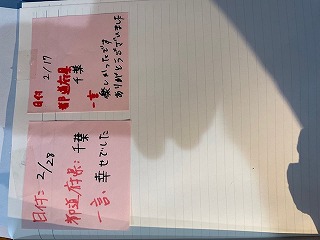 日付 2/17
都道府県 千葉
一言
楽しかったです
ありがとうございました
日付: 2/28
都道府県: 千葉
一言、幸せでした